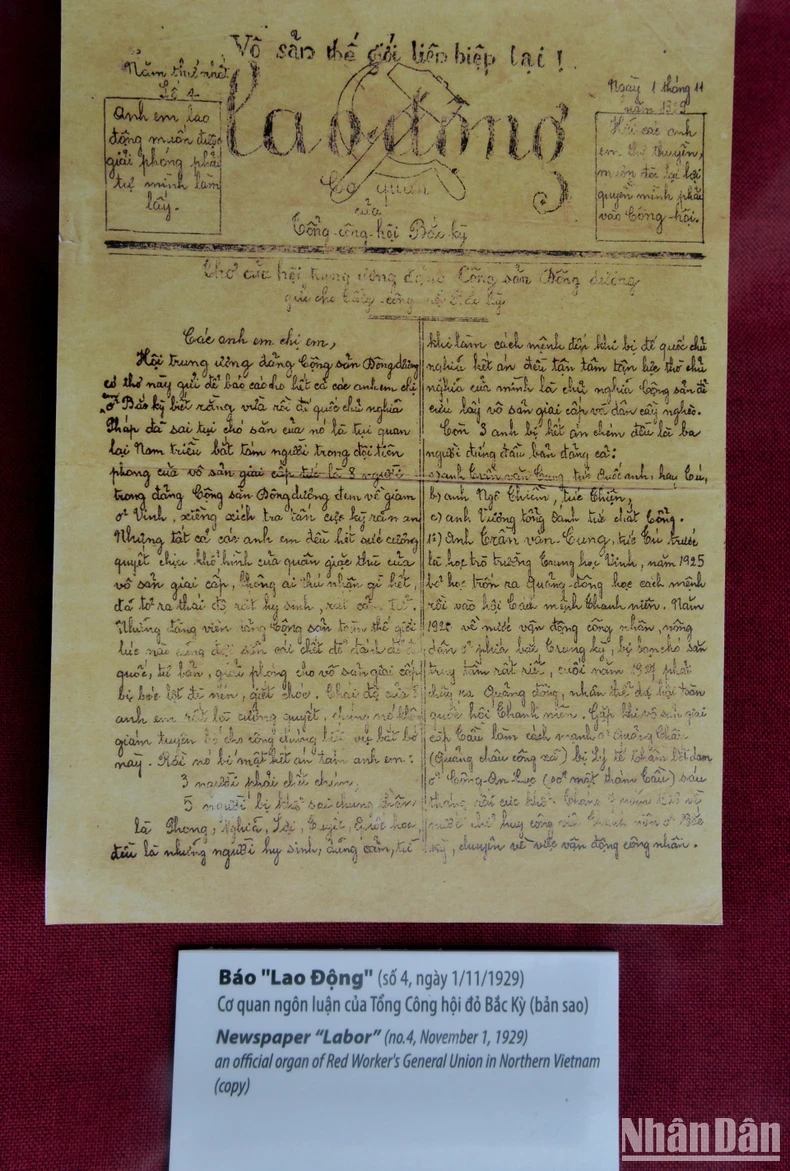 Vô sản thế giới liên hiệp lại!
Năm thứ nhất
Số 4
Ngày 1 tháng 11
năm 1929
Lao động
Anh em lao
động muốn được
giải phóng phải
tự mình làm
lấy.
Hỡi các anh
em thợ thuyền,
muốn đòi lại lợi
quyền mình phải
vào Công-hội.
Cơ quan
của
Tổng-công-hội Bắc kỳ
Thơ của hội trung ương đảng Cộng sản Đông dương
gửi cho Tổng-công-hội Bắc kỳ
Các anh em chị em,
Hội trung ương đảng Cộng sản Đông dương
có thơ này gửi để báo cáo cho hết cả các anh em chị
ở Bắc kỳ biết rằng vừa rồi đế quốc chủ nghĩa
Pháp đã sai tụi chó săn của nó là tụi quan
lại Nam triều bắt tám người trong đội tiên
phong của vô sản giai cấp tức là 8 người
trong đảng Cộng sản Đông dương đem về giam
ở Vinh, xiềng xích tra tấn cực kỳ
Nhưng tất cả các anh em đều hết sức cương
quyết chịu khổ hình của quân giặc thù của
vô sản giai cấp, không ai thú nhận gì hết,
đã tỏ ra thái độ rất hy sinh, rất
Những đảng viên đảng Cộng sản toàn thế giới
lúc nào cũng đợi sẵn cái chết để đánh đổ đế
quốc, tư bản, giải phóng cho vô sản giai cấp
bị bóc lột đè nén, giết chóc. Thái độ của
anh em rất là cương quyết, chúng nó không
giám tuyên bố cho công chúng biết vụ bắt bớ
này. Rồi nó bí mật kết án tám anh em:
3 người phải chết chém,
5 người bị khổ sai chung thân
là Phong, Nghĩa, Lợi, Tuyết,
đều là những người hy sinh, dũng cảm, từ
khi làm cách mệnh đến khi bị đế quốc chủ
nghĩa kết án đều tận tâm tận lực thờ chủ
nghĩa của mình là chủ nghĩa Cộng sản để
cứu lấy vô sản giai cấp và dân cày nghèo.
Còn 3 anh bị kết án chém đều là ba
người đứng đầu bản đảng cả:
a) anh Trần văn Cung, tức Quốc anh, hay Cú,
b) anh Ngô Thiền, tức Thiện,
c) anh Vương tống Sánh tức chất Công.
1º) Anh Trần văn Cung, tức Cú trước
là học trò trường Trung học Vinh, năm 1925
bỏ học trốn ra Quảng-đông học cách mệnh
rồi vào hội Cách mệnh thanh niên. Năm
về nước vận động công nhân, nông
dân ở phía bắc Trung kỳ, bị bọn chó săn
truy tầm rất riết, cuối năm 1927 phải
chạy ra Quảng đông, nhân thể dự hội toàn
quốc hội Thanh niên. Gặp khi vô sản giai
cấp Tàu làm cách mệnh ở Quảng Châu
(Quảng châu công xã) bị Lý tế Thâm bắt đem
ở Công-An-Lục (sở mật thám Tàu) sáu
tháng rồi
kỳ, chuyên về việc vận động công nhân.
Báo "Lao Động" (số 4, ngày 1/11/1929)
Cơ quan ngôn luận của Tổng Công hội đỏ Bắc Kỳ (bản sao)
Newspaper “Labor” (no.4, November 1, 1929)
an official organ of Red Worker's General Union in Northern Vietnam
(copy)
NhânDân